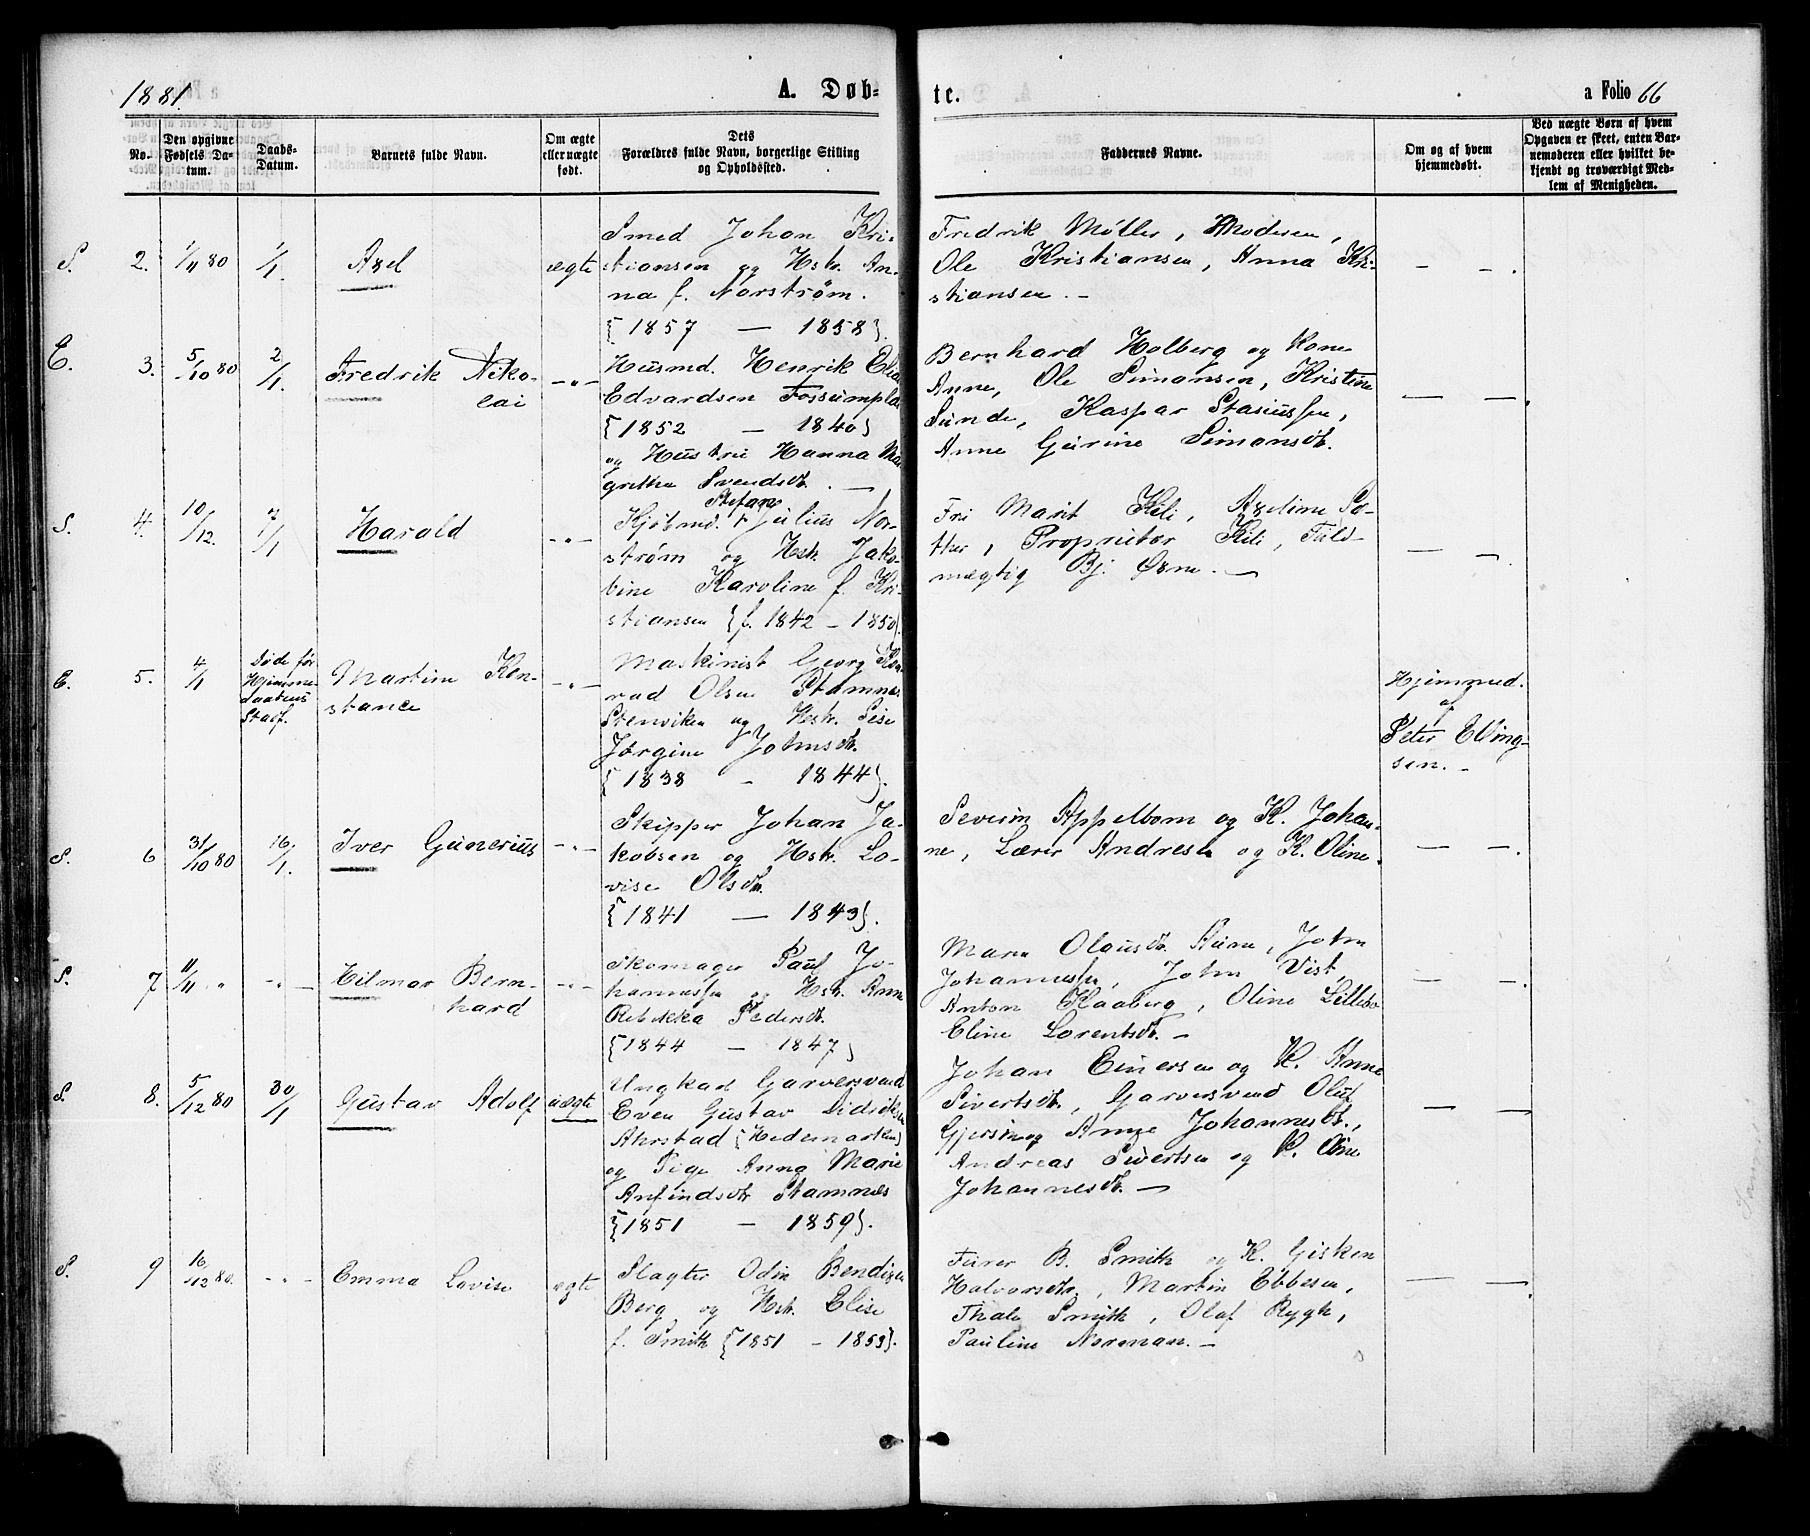 1881.
A. Døb-
te.
a Folio 66
No.
Den opgivne Fødsels Da-tum.
Daabs-Datum.
Barnets fulde Navn.
Om ægte eller uægte født.
Dets Forældres fulde Navn, borgerlige Stilling og Opholdssted.
Faddernes Navne.
Om og af hvem hjemmedøbt.
Ved uægte Børn af hvem Opgaven er skeet, enten Bar-nemoderen eller hvilket be-kjendt og troværdigt Med-lem af Menigheden.
S. 2. 1/11 80 1/1. Axel ægte
Smed Johan Kri-
stiansen og Hstr. An-
na f. Norstrøm.
{1857 — 1858}.
Fredrik Møller,
Ole Kristiansen, Anna Kri-
stiansen. —
— —.
E. 3. 5/10 80 2/1. Fredrik Niko-
lai —"—
Husmd. Henrik Elias
Edvardsen Fossumpla
{1852 — 1840}
og Hustru Hanna Ma
grethe Svendsdt. —
Bernhard Holberg og Kone
Anne, Ole Simonsen, Kristine
Sunde, Kaspar Stasiussen,
Anne Gurine Simonsdt.
— —.
S. 4. 10/12. 7/1 Harald —"—
Stefan
Kjøbmd. Julius Nor-
strøm og Hstr. Jako-
bine Karoline f. Kri-
stiansen {f. 1842 – 1850}.
Frk Marit Kili, Axeline So-
ther, Proprietør Kili, Fuld-
mægtig Bj. Øxne. —
— —.
E. 5. 4/1 Døde før
Hjemme-
daabens
Stadf.
Martine Kon-
stance —"—
Maskinist Georg Kon
rad Olsen Stamnes
Stenviken og Hstr. Sise
Jørgine Johnsdt.
{1838 – 1844}.
Hjemmed.
af
Peter Elling-
sen. –
S. 6 31/10 80 16/1. Iver Gunerius —"—
Skipper Johan Ja-
kobsen og Hstr. Lo-
vise Olsdt.
{1841 — 1843}.
Severin Appelbom og K. Johan-
ne, Lærer Andresen og K. Oline.
— —.
S. 7 11/11 " —"— Hilmar Bern-
hard —"—
Skomager Paul Jo-
hannessen og Hstr. Anne
Rebekka Pedersdt.
{1844 – 1847}
Maren Olausdt. Aune, John
Johannessen, John Vist,
Anton Kaaberg, Oline Lillebo
Eline Lorentsdt. –
— —.
S. 8. 5/12 80 30/1 Gustav Adolf uægte
Ungkarl Garversvend
Even Gustav Didriksen
Ahrstad (Hedemarken)
og Pige Anna Marie
Anfindsdtr Stamnes
{1851 – 1859}.
Johan Einersen og K. Anne
Sivertsdt., Garversvend Oluf
Gjersing Anne Johannesdt.,
Andreas Sivertsen og K. Oline
Johannesdt. —
— —.
S. 9 16/12 80. —"— Emma Lovise ægte
Slagter Odin Bendixen
Berg og Hstr. Elise
f. Smith {1851 – 1853}.
Feirer B. Smith og K. Gisken
Halvorsdtr., Martin Ebbesen,
Thale Smith, Olaf Rygh,
Pauline Norman. –
— —.